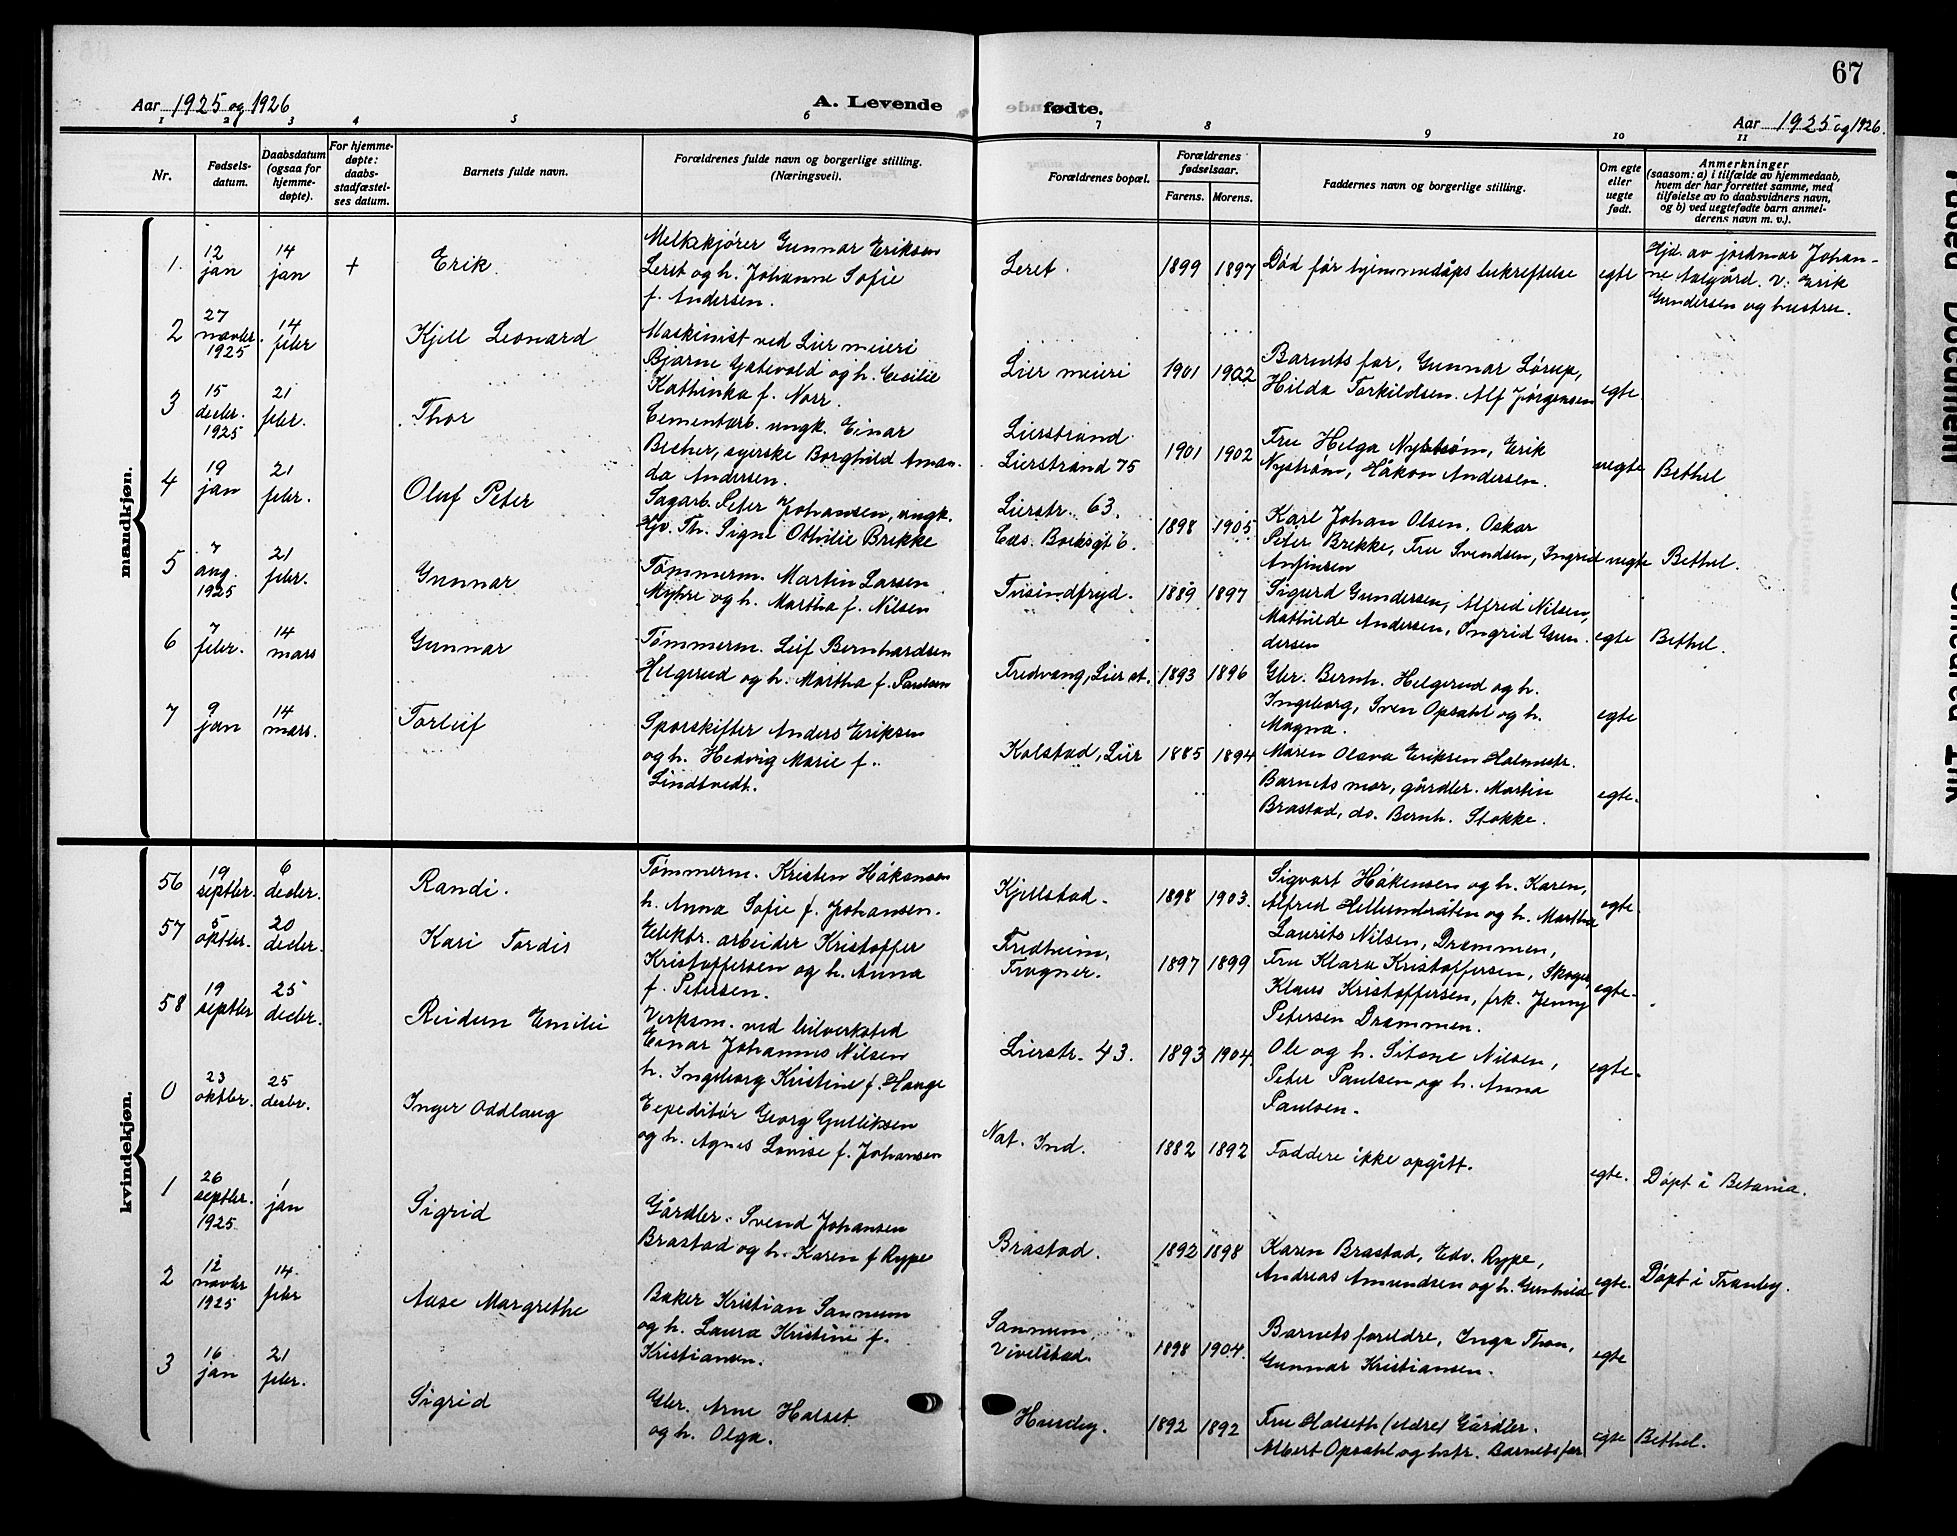 67
Aar 1925 og 1926
A. Levende fødte.
Aar 1925 og 1926.
1 2 3 4 5 6 7 8 9 10 11
Nr.
Fødsels-
datum.
Daabsdatum
(ogsaa for
hjemme-
døpte).
For hjemme-
døpte:
daabs-
stadfæstel-
ses datum.
Barnets fulde navn.
Forældrenes fulde navn og borgerlige stilling.
(Næringsvei).
Forældrenes bopæl.
Forældrenes
fødselsaar.
Farens. Morens.
Faddernes navn og borgerlige stilling.
Om egte
eller
uegte
født.
Anmerkninger
(saasom: a) i tilfælde av hjemmedaab,
hvem der har forrettet samme, med
tilføielse av to daabsvidners navn,
og b) ved uegtefødte barn anmel-
derens navn m. v.).
mandkjøn.
1.
12
jan
14
jan
+
Erik.
Melkekjører Gunnar Eriksen
Leret og h. Johanne Sofie
f. Andersen.
Leret.
1899 1897
Død før hjemmedåps bekreftelse
egte
Hjd. av jordmor Johan-
ne Aalgård. V: Erik
Gundersen og hustru.
2
27
novbr.
1925
14
febr
Kjell Leonard
Maskinist ved Lier meieri
Bjarne Gatevold og h. Cecilie
Kathinka f. Norr.
Lier meieri
1901 1902
Barnets far, Gunnar Lørup,
Hilda Torkildsen. Alf Jørgensen
egte
3
15
decbr.
1925
21
febr.
Thor
Cementarb. ungk. Einar
Becher, syerske Borghild Aman-
da Andersen.
Lierstrand
Lierstrand 75
1901 1902
Fru Helga Nystrøm, Erik
Nystrøm, Håkon Andersen.
uegte
Bethel
4
19
jan
21
febr.
Oluf Peter
Sagarb. Peter Johansen, ungk.
Gv. Th. Signe Ottilie Brekke
Lierstr. 63.
1898 1905
Karl Johan Olsen. Oskar
Peter Brekke, Fru Svendsen, Ingrid
Anfinsen
uegte
Bethel.
5
7
aug.
1925
21
febr.
Gunnar
Tømmerm. Martin Larsen
Myhre og h. Martha f. Nilsen
Tusindfryd.
1889 1897
Sigurd Gundersen, Alfred Nilsen,
Mathilde Andersen, Ingrid Gun-
dersen
egte
Bethel.
6
7
febr.
14
mars
Gunnar
Tømmerm. Leif Bernhardsen
Helgerud og h. Martha f. Paulsen
Fredvang, Lier st.
1893 1896
Gbr. Bernh. Helgerud og h.
Ingeborg, Sven Opsahl og h.
Magna.
egte
7
9
jan
14
mars.
Torleif
Sporskifter Anders Eriksen
og h. Hedvig Marie f.
Lindtvedt.
Kolstad, Lier
1885 1894
Maren Olava Eriksen Holmestr.
Barnets mor, gårdbr. Martin
Brastad, do. Bernh. Stokke.
egte.
kvindekjøn.
56
19
septbr.
6
decbr.
Randi.
Tømmerm. Kristen Håkonsen
h. Anna Sofie f. Johansen.
Kjellstad.
1898 1903.
Sigvart Håkensen og h. Karen,
Alfred Hellumdråten og h. Martha
egte.
57
5
oktbr.
20
decbr.
Kari Tordis
Elektr. arbeider Kristoffer
Kristoffersen og h. Anna
f. Petersen.
Fredheim,
Frogner.
1897 1899
Laurits Nilsen, Drammen,
Fru Klara Kristoffersen, Skoger
Klaus Kristoffersen, frk. Jenny
Petersen Drammen.
egte.
58
19
septbr
25
decbr.
Reidun Emilie
Verksm. ved bilverksted
Einar Johannes Nilsen
h. Ingeborg Kristine f. Hauge
Lierstr. 43.
1893 1904.
Ole og h. Sitene Nilsen,
Peter Paulsen og h. Anna
Paulsen.
egte.
0
23
oktbr.
25
decbr.
Inger Oddlaug
Expeditør Georg Gulliksen
og h. Agnes Lovise f. Johansen
Nat. Ind.
1882 1892
Faddere ikke opgitt.
egte.
Døpt i Betania.
1
26
septbr.
1925
1
jan
Sigrid
Gårdbr. Svend Johansen
Brastad og h. Karen f Rype
Brastad.
1892 1898
Karen Brastad, Edv. Rype,
Andreas Amundsen og h. Gunhild
egte.
Døpt i Tranby.
2
12
novbr
1925
14.
febr
Aase Margrethe
Baker Kristian Sannum
og h. Laura Kristine f.
Kristiansen.
Sannum
Vivelstad.
1898 1904.
Barnets foreldre, Inga Thon,
Gunnar Kristiansen.
egte
3
16
jan
21
febr.
Sigrid
Gbr. Arne Halset
og h. Olga.
Huseby.
1892 1892
Fru Halseth (eldre) Gårdbr.
Albert Opsahl og hstr. Barnets far
egte
Bethel.